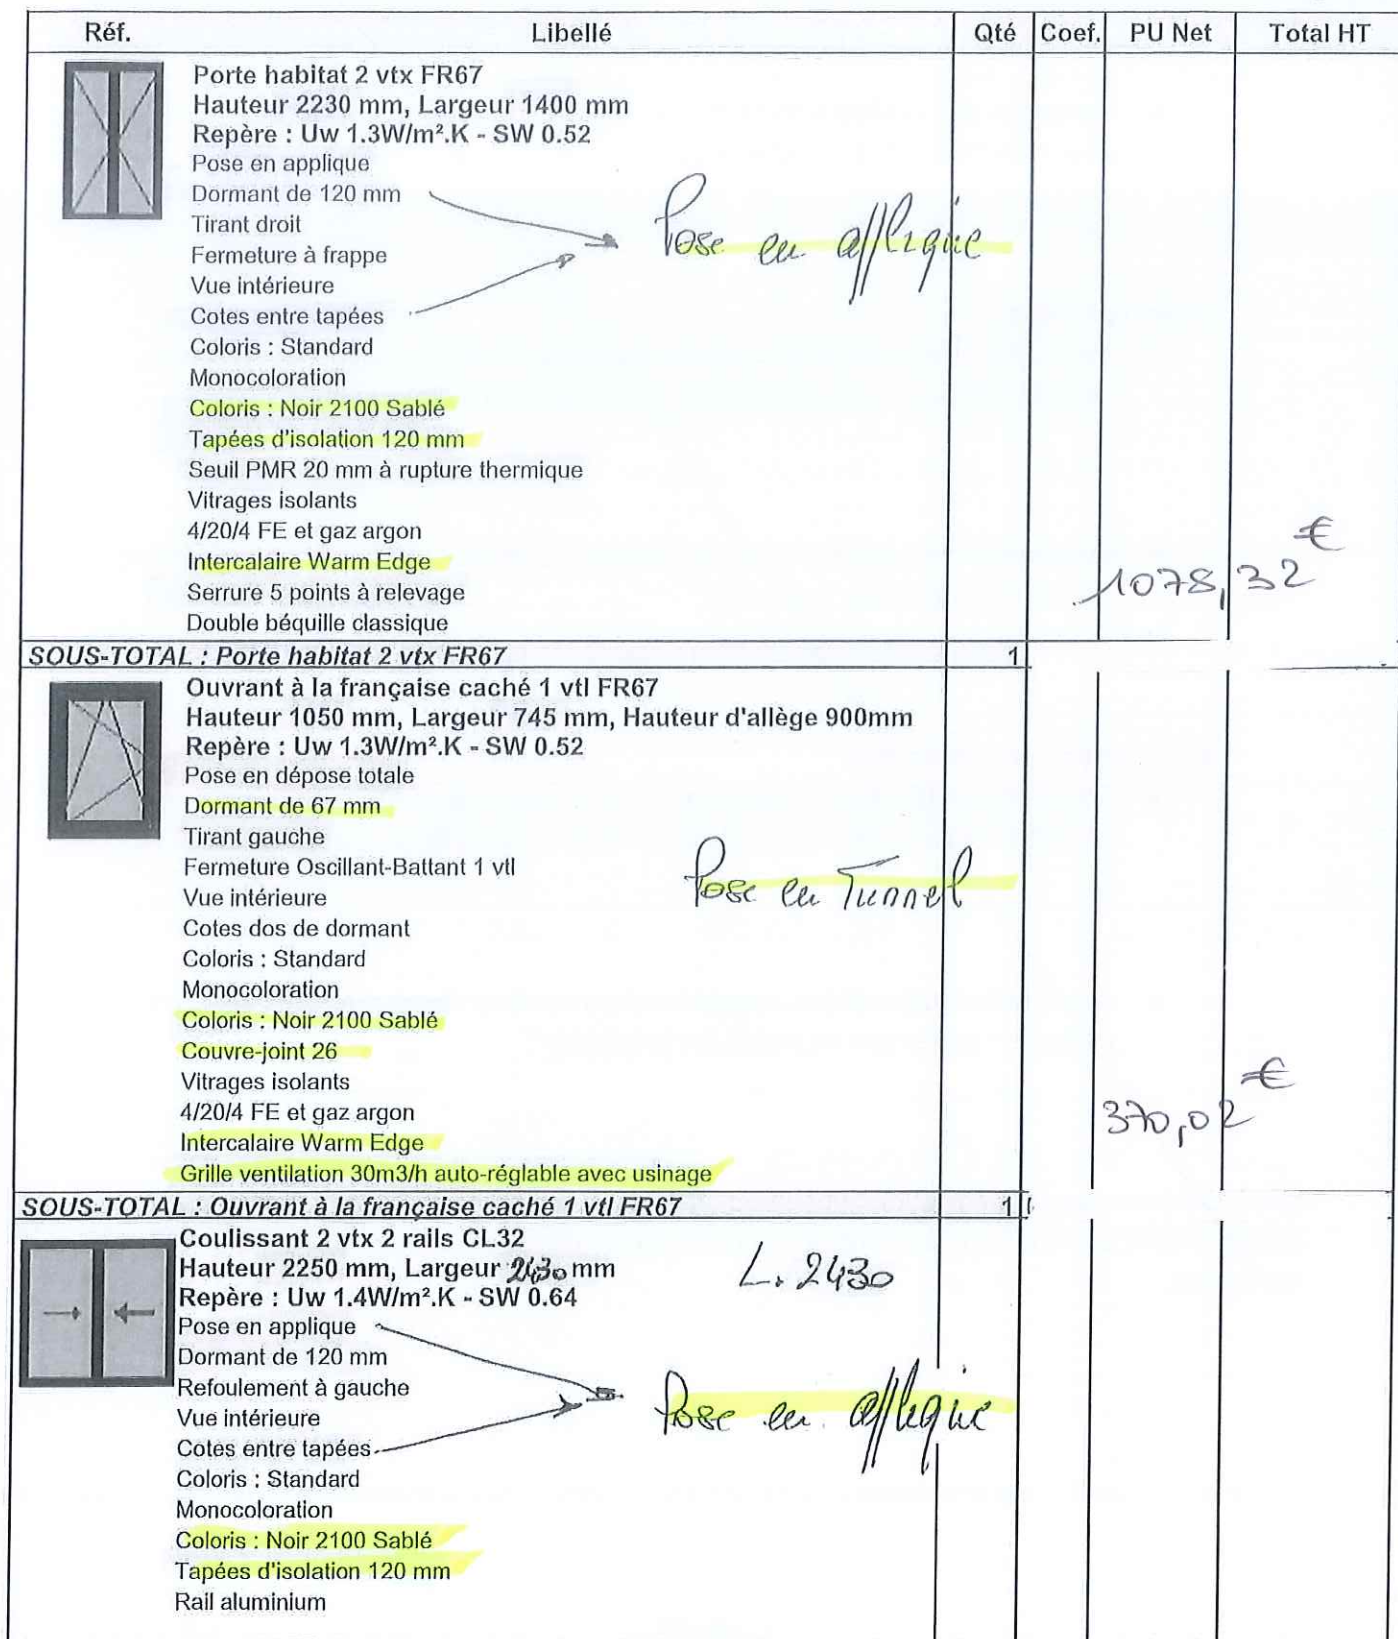 Réf. Libellé Qté Coef. PU Net Total HT
Porte habitat 2 vtx FR67
Hauteur 2230 mm, Largeur 1400 mm
Repère : Uw 1.3W/m².K - SW 0.52
Pose en applique
Dormant de 120 mm
Tirant droit
Pose en applique
Fermeture à frappe
Vue intérieure
Cotes entre tapées
Coloris : Standard
Monocoloration
Coloris : Noir 2100 Sablé
Tapées d'isolation 120 mm
Seuil PMR 20 mm à rupture thermique
Vitrages isolants
4/20/4 FE et gaz argon
Intercalaire Warm Edge
1078,32 €
Serrure 5 points à relevage
Double béquille classique
SOUS-TOTAL : Porte habitat 2 vtx FR67 1
Ouvrant à la française caché 1 vtl FR67
Hauteur 1050 mm, Largeur 745 mm, Hauteur d'allège 900mm
Repère : Uw 1.3W/m².K - SW 0.52
Pose en dépose totale
Dormant de 67 mm
Tirant gauche
Fermeture Oscillant-Battant 1 vtl
Pose en Tunnel
Vue intérieure
Cotes dos de dormant
Coloris : Standard
Monocoloration
Coloris : Noir 2100 Sablé
Couvre-joint 26
Vitrages isolants
4/20/4 FE et gaz argon
370,02 €
Intercalaire Warm Edge
Grille ventilation 30m3/h auto-réglable avec usinage
SOUS-TOTAL : Ouvrant à la française caché 1 vtl FR67 1
Coulissant 2 vtx 2 rails CL32
Hauteur 2250 mm, Largeur 2430 mm L. 2430
Repère : Uw 1.4W/m².K - SW 0.64
Pose en applique
Dormant de 120 mm
Refoulement à gauche
Pose en applique
Vue intérieure
Cotes entre tapées
Coloris : Standard
Monocoloration
Coloris : Noir 2100 Sablé
Tapées d'isolation 120 mm
Rail aluminium